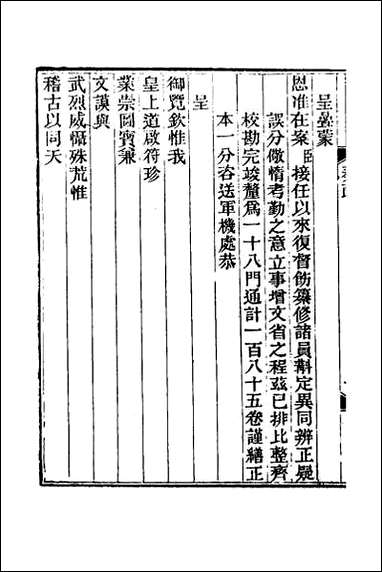 呈彞蒙
恩准在案臣接任以來復督飭纂修諸員斠定異同辨正疑
誤分儆惰考勤之意立事增文省之程茲已排比整齊
校勘完竣釐爲一十八門通計一百八十五卷謹繕正
本一分咨送軍機處恭
呈
御覽欽惟我
皇上道啟符珍
業崇圖寶兼
文謨與
武烈威懾殊荒惟
稽古以同天